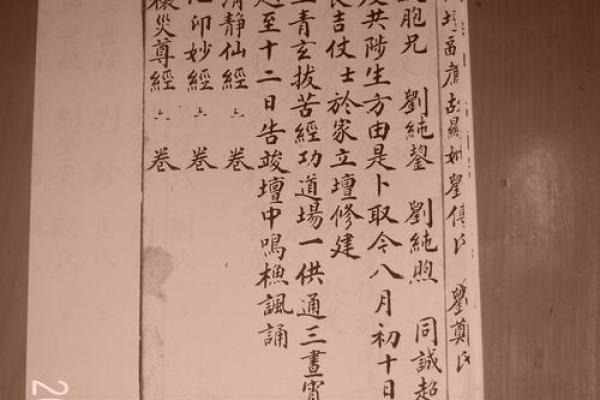 劉傅氏 劉鄭氏
胞兄 劉純鋆 劉純煦 同誠超
共陟生方由是卜取今八月初十日
吉仗士於家立壇修建
青玄拔苦經功道場一供通三晝宵
至十二日告竣壇中鳴樵諷誦
清靜仙經 六 卷
印妙經 六 卷
禳災尊經 六 卷